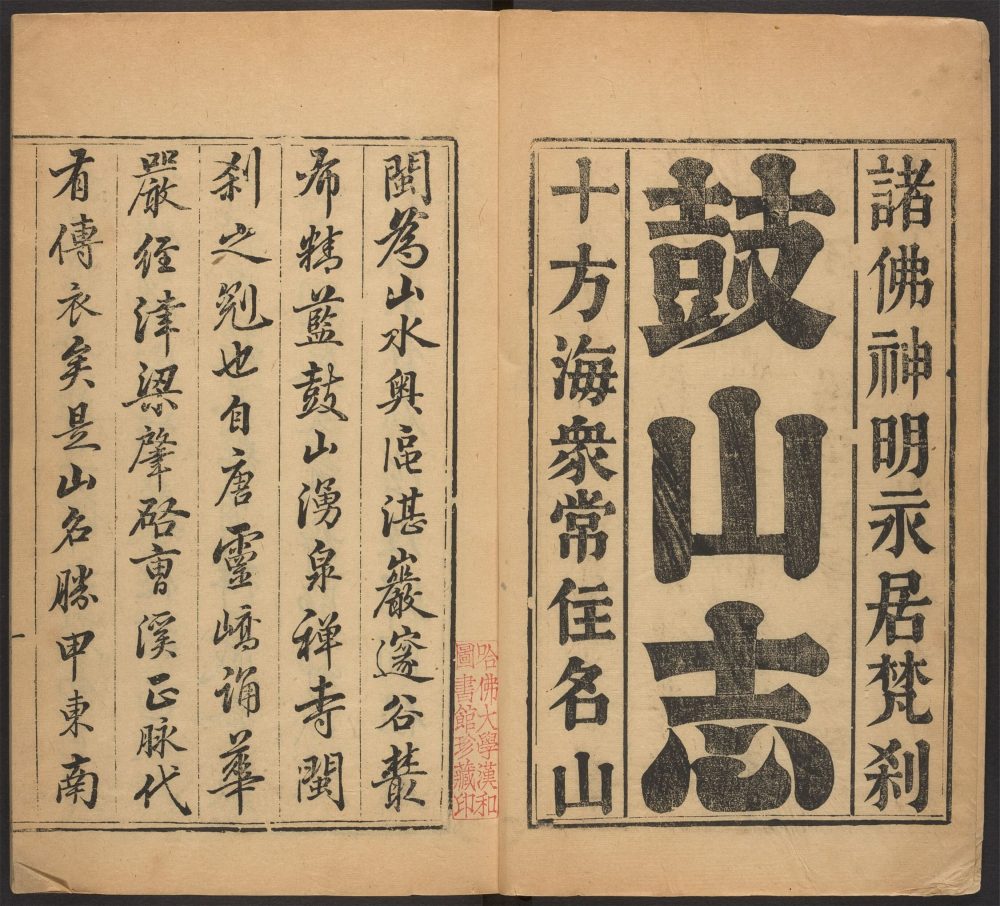 諸佛神明永居梵刹
鼓山志
十方海衆常住名山
哈佛大學漢和
圖書館珍藏印
閩爲山水奥區湛巖邃谷叢
布精藍鼓山湧泉禅寺閩
刹之冠也自唐靈嶠誦華
嚴经津梁肇啓曺溪正脉代
有傳衣矣是山名勝甲東南